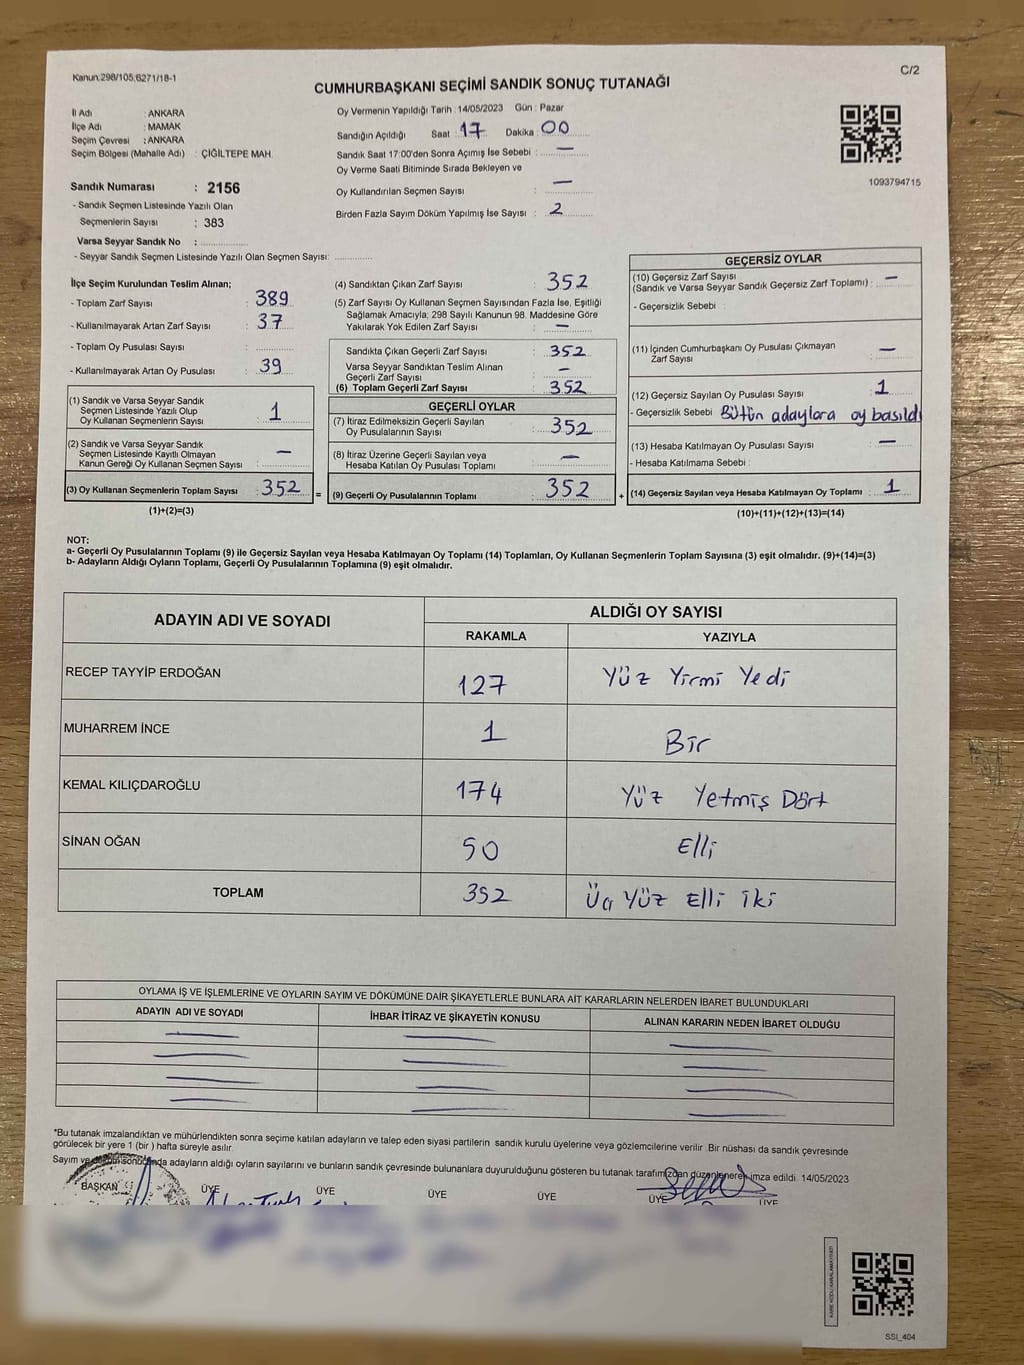 Kanun:298/105;6271/18-1
C/2
CUMHURBAŞKANI SEÇİMİ SANDIK SONUÇ TUTANAĞI
İl Adı : ANKARA
İlçe Adı : MAMAK
Seçim Çevresi : ANKARA
Seçim Bölgesi (Mahalle Adı) : ÇİĞİLTEPE MAH.
Sandık Numarası : 2156
- Sandık Seçmen Listesinde Yazılı Olan
Seçmenlerin Sayısı : 383
Varsa Seyyar Sandık No :
- Seyyar Sandık Seçmen Listesinde Yazılı Olan Seçmen Sayısı:
Oy Vermenin Yapıldığı Tarih : 14/05/2023 Gün : Pazar
Sandığın Açıldığı Saat : 17 Dakika : 00
Sandık Saat 17:00'den Sonra Açımış İse Sebebi : —
Oy Verme Saati Bitiminde Sırada Bekleyen ve
Oy Kullandırılan Seçmen Sayısı : —
Birden Fazla Sayım Döküm Yapılmış İse Sayısı : 2
1093794715
İlçe Seçim Kurulundan Teslim Alınan;
- Toplam Zarf Sayısı : 389
- Kullanılmayarak Artan Zarf Sayısı : 37
- Toplam Oy Pusulası Sayısı :
- Kullanılmayarak Artan Oy Pusulası : 39
(1) Sandık ve Varsa Seyyar Sandık
Seçmen Listesinde Yazılı Olup
Oy Kullanan Seçmenlerin Sayısı : 1
(2) Sandık ve Varsa Seyyar Sandık
Seçmen Listesinde Kayıtlı Olmayan
Kanun Gereği Oy Kullanan Seçmen Sayısı : —
(3) Oy Kullanan Seçmenlerin Toplam Sayısı : 352
(1)+(2)=(3)
=
(4) Sandıktan Çıkan Zarf Sayısı : 352
(5) Zarf Sayısı Oy Kullanan Seçmen Sayısından Fazla İse, Eşitliği
Sağlamak Amacıyla; 298 Sayılı Kanunun 98. Maddesine Göre
Yakılarak Yok Edilen Zarf Sayısı : —
Sandıkta Çıkan Geçerli Zarf Sayısı : 352
Varsa Seyyar Sandıktan Teslim Alınan
Geçerli Zarf Sayısı : —
(6) Toplam Geçerli Zarf Sayısı : 352
GEÇERLİ OYLAR
(7) İtiraz Edilmeksizin Geçerli Sayılan
Oy Pusulalarının Sayısı : 352
(8) İtiraz Üzerine Geçerli Sayılan veya
Hesaba Katılan Oy Pusulası Toplamı : —
(9) Geçerli Oy Pusulalarının Toplamı : 352
+
GEÇERSİZ OYLAR
(10) Geçersiz Zarf Sayısı
(Sandık ve Varsa Seyyar Sandık Geçersiz Zarf Toplamı) : —
- Geçersizlik Sebebi :
(11) İçinden Cumhurbaşkanı Oy Pusulası Çıkmayan
Zarf Sayısı : —
(12) Geçersiz Sayılan Oy Pusulası Sayısı : 1
- Geçersizlik Sebebi : Bütün adaylara oy basıldı
(13) Hesaba Katılmayan Oy Pusulası Sayısı : —
- Hesaba Katılmama Sebebi :
(14) Geçersiz Sayılan veya Hesaba Katılmayan Oy Toplamı : 1
(10)+(11)+(12)+(13)=(14)
NOT:
a- Geçerli Oy Pusulalarının Toplamı (9) ile Geçersiz Sayılan veya Hesaba Katılmayan Oy Toplamı (14) Toplamları, Oy Kullanan Seçmenlerin Toplam Sayısına (3) eşit olmalıdır. (9)+(14)=(3)
b- Adayların Aldığı Oyların Toplamı, Geçerli Oy Pusulalarının Toplamına (9) eşit olmalıdır.
ADAYIN ADI VE SOYADI
ALDIĞI OY SAYISI
RAKAMLA YAZIYLA
RECEP TAYYİP ERDOĞAN 127 Yüz Yirmi Yedi
MUHARREM İNCE 1 Bir
KEMAL KILIÇDAROĞLU 174 Yüz Yetmiş Dört
SİNAN OĞAN 50 Elli
TOPLAM 352 Üç Yüz Elli iki
OYLAMA İŞ VE İŞLEMLERİNE VE OYLARIN SAYIM VE DÖKÜMÜNE DAİR ŞİKAYETLERLE BUNLARA AİT KARARLARIN NELERDEN İBARET BULUNDUKLARI
ADAYIN ADI VE SOYADI İHBAR İTİRAZ VE ŞİKAYETİN KONUSU ALINAN KARARIN NEDEN İBARET OLDUĞU
*Bu tutanak imzalandıktan ve mühürlendikten sonra seçime katılan adayların ve talep eden siyasi partilerin sandık kurulu üyelerine veya gözlemcilerine verilir. Bir nüshası da sandık çevresinde
görülecek bir yere 1 (bir ) hafta süreyle asılır.
Sayım ve döküm sonucunda adayların aldığı oyların sayılarını ve bunların sandık çevresinde bulunanlara duyurulduğunu gösteren bu tutanak tarafımızdan düzenlenerek imza edildi. 14/05/2023
BAŞKAN ÜYE ÜYE ÜYE ÜYE ÜYE ÜYE
SSI_404